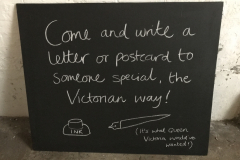 Come and write a
letter or postcard to
someone special, the
Victorian way!
INK
(It's what Queen
Victoria would've
wanted!)